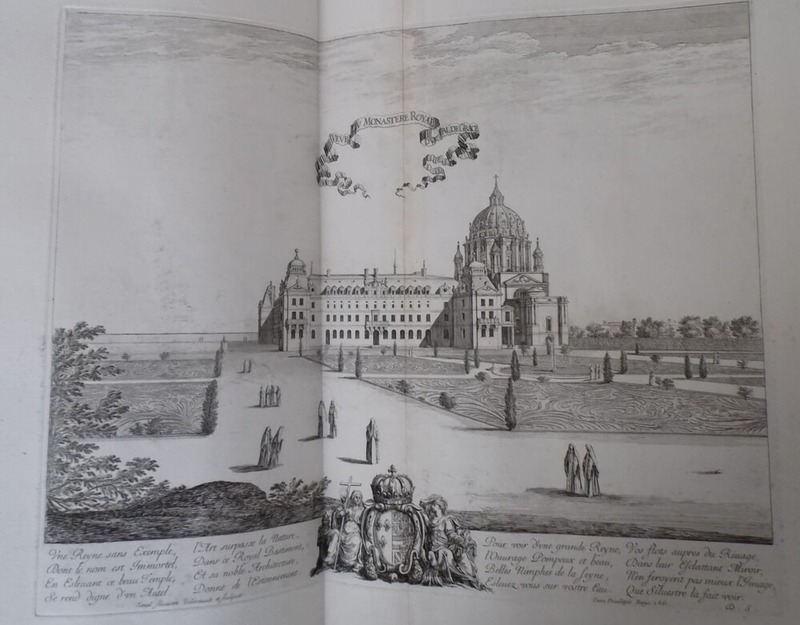 VEVE DV MONASTERE ROYAL DV VAL DE GRACE
Vne Reyne sans Exemple,
Dont le nom est Immortel,
En Esleuant ce beau Temple,
Se rend digne d'vn Autel.
l'Art surpasse la Nature,
Dans ce Royal Bastiment,
Et sa noble Architecture,
Donne de l'Estonnement.
Pour voir d'vne grande Reyne,
l'Ouurage Pompeux et beau,
Belles Nimphes de la Seyne,
Esleuez vous sur vostre Eau.
Vos flots aupres du Riuage,
Dans leur Esclattant Miroir,
N'en feroyent pas mieux l'Image,
Que Siluestre la fait voir.
Israel Siluestre delineauit et sculpsit
Cum Priuilegio Regis